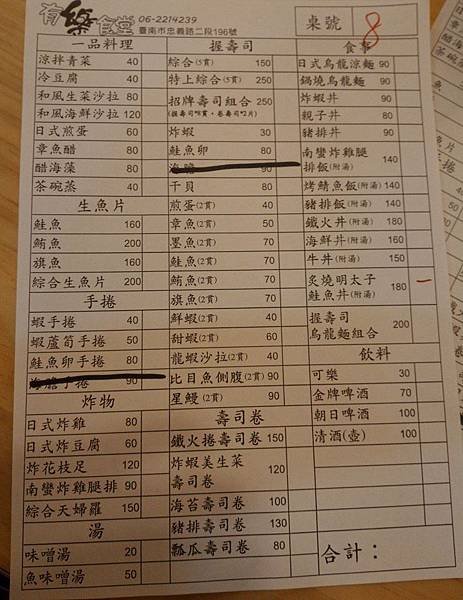 有樂食堂 06-2214239
臺南市忠義路二段196號
桌號 8
一品料理
涼拌青菜 40
冷豆腐 40
和風生菜沙拉 80
和風海鮮沙拉 120
日式煎蛋 60
章魚醋 80
醋海藻 80
茶碗蒸 40
生魚片
鮭魚 160
鮪魚 200
旗魚 160
綜合生魚片 200
手捲
蝦手捲 40
蝦蘆筍手捲 60
鮭魚卵手捲 80
海膽手捲 90
炸物
日式炸雞 80
日式炸豆腐 60
炸花枝足 120
南蠻炸雞腿排 90
綜合天婦羅 150
湯
味噌湯 20
魚味噌湯 50
握壽司
綜合(5貫) 150
特上綜合(5貫) 250
招牌壽司組合 250
(握壽司8貫，卷壽司2片)
炸蝦 30
鮭魚卵 80
海膽 90
干貝 80
煎蛋(2貫) 40
章魚(2貫) 50
墨魚(2貫) 70
鮭魚(2貫) 70
鮪魚(2貫) 70
旗魚(2貫) 70
鮮蝦(2貫) 40
甜蝦(2貫) 60
龍蝦沙拉(2貫) 40
比目魚側腹(2貫) 90
星鰻(2貫) 90
壽司卷
鐵火捲壽司卷 150
炸蝦美生菜
壽司卷 120
海苔壽司卷 100
豬排壽司卷 130
瓢瓜壽司卷 80
食事
日式烏龍涼麵 90
鍋燒烏龍麵 90
炸蝦丼 90
親子丼 80
豬排丼 90
南蠻炸雞腿
排飯(附湯) 140
烤鯖魚飯(附湯) 140
豬排飯(附湯) 140
鐵火丼(附湯) 180
海鮮丼(附湯) 160
牛丼(附湯) 150
炙燒明太子
鮭魚丼(附湯) 180 一
握壽司
烏龍麵組合 200
飲料
可樂 30
金牌啤酒 70
朝日啤酒 100
清酒(壺) 100
合計：